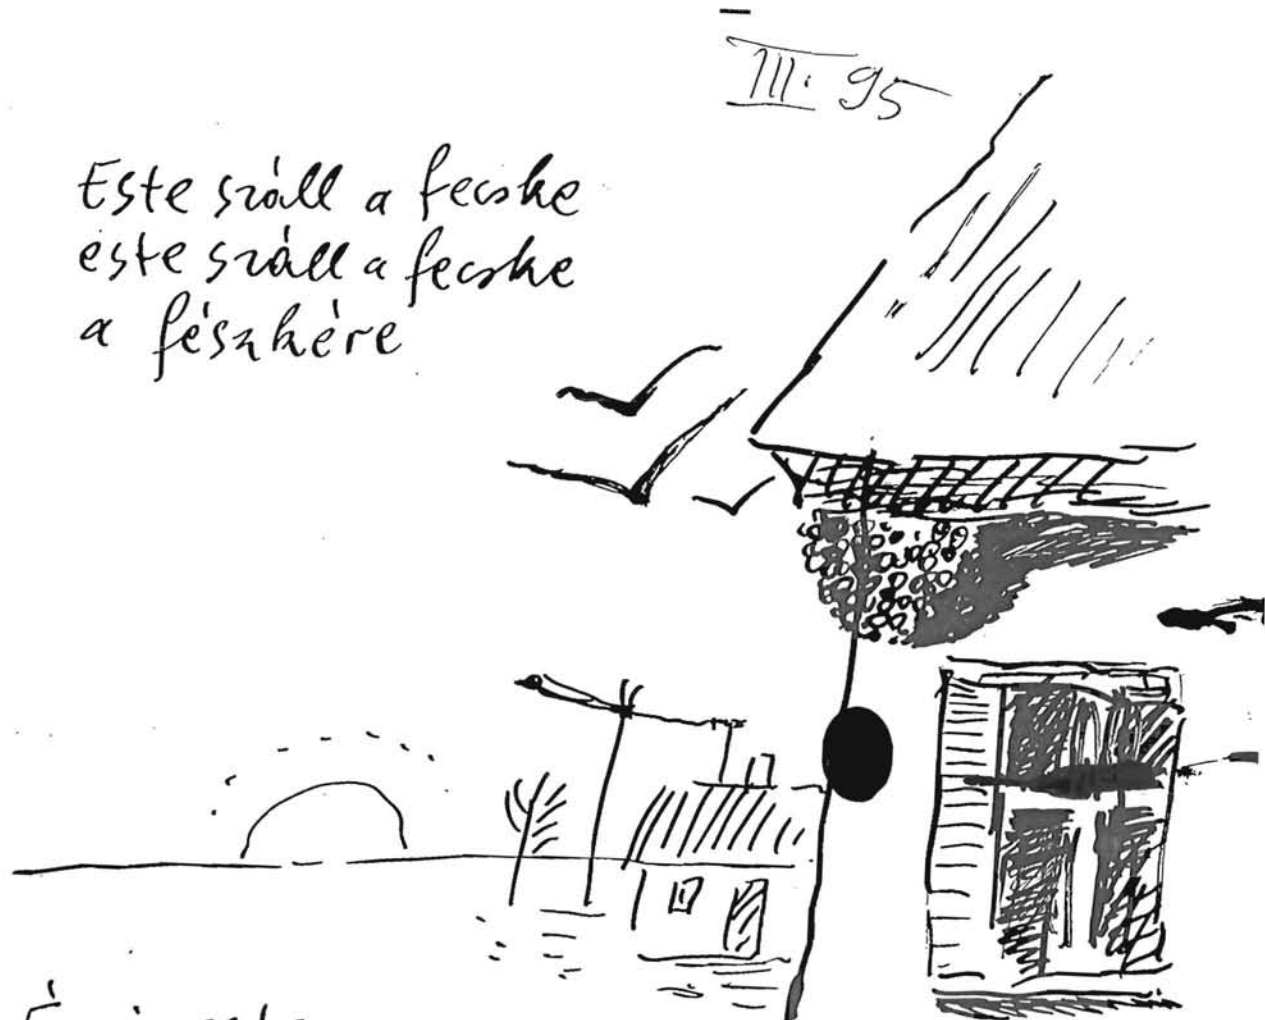 III. 95
Este száll a fecske
este száll a fecske
a fészkére